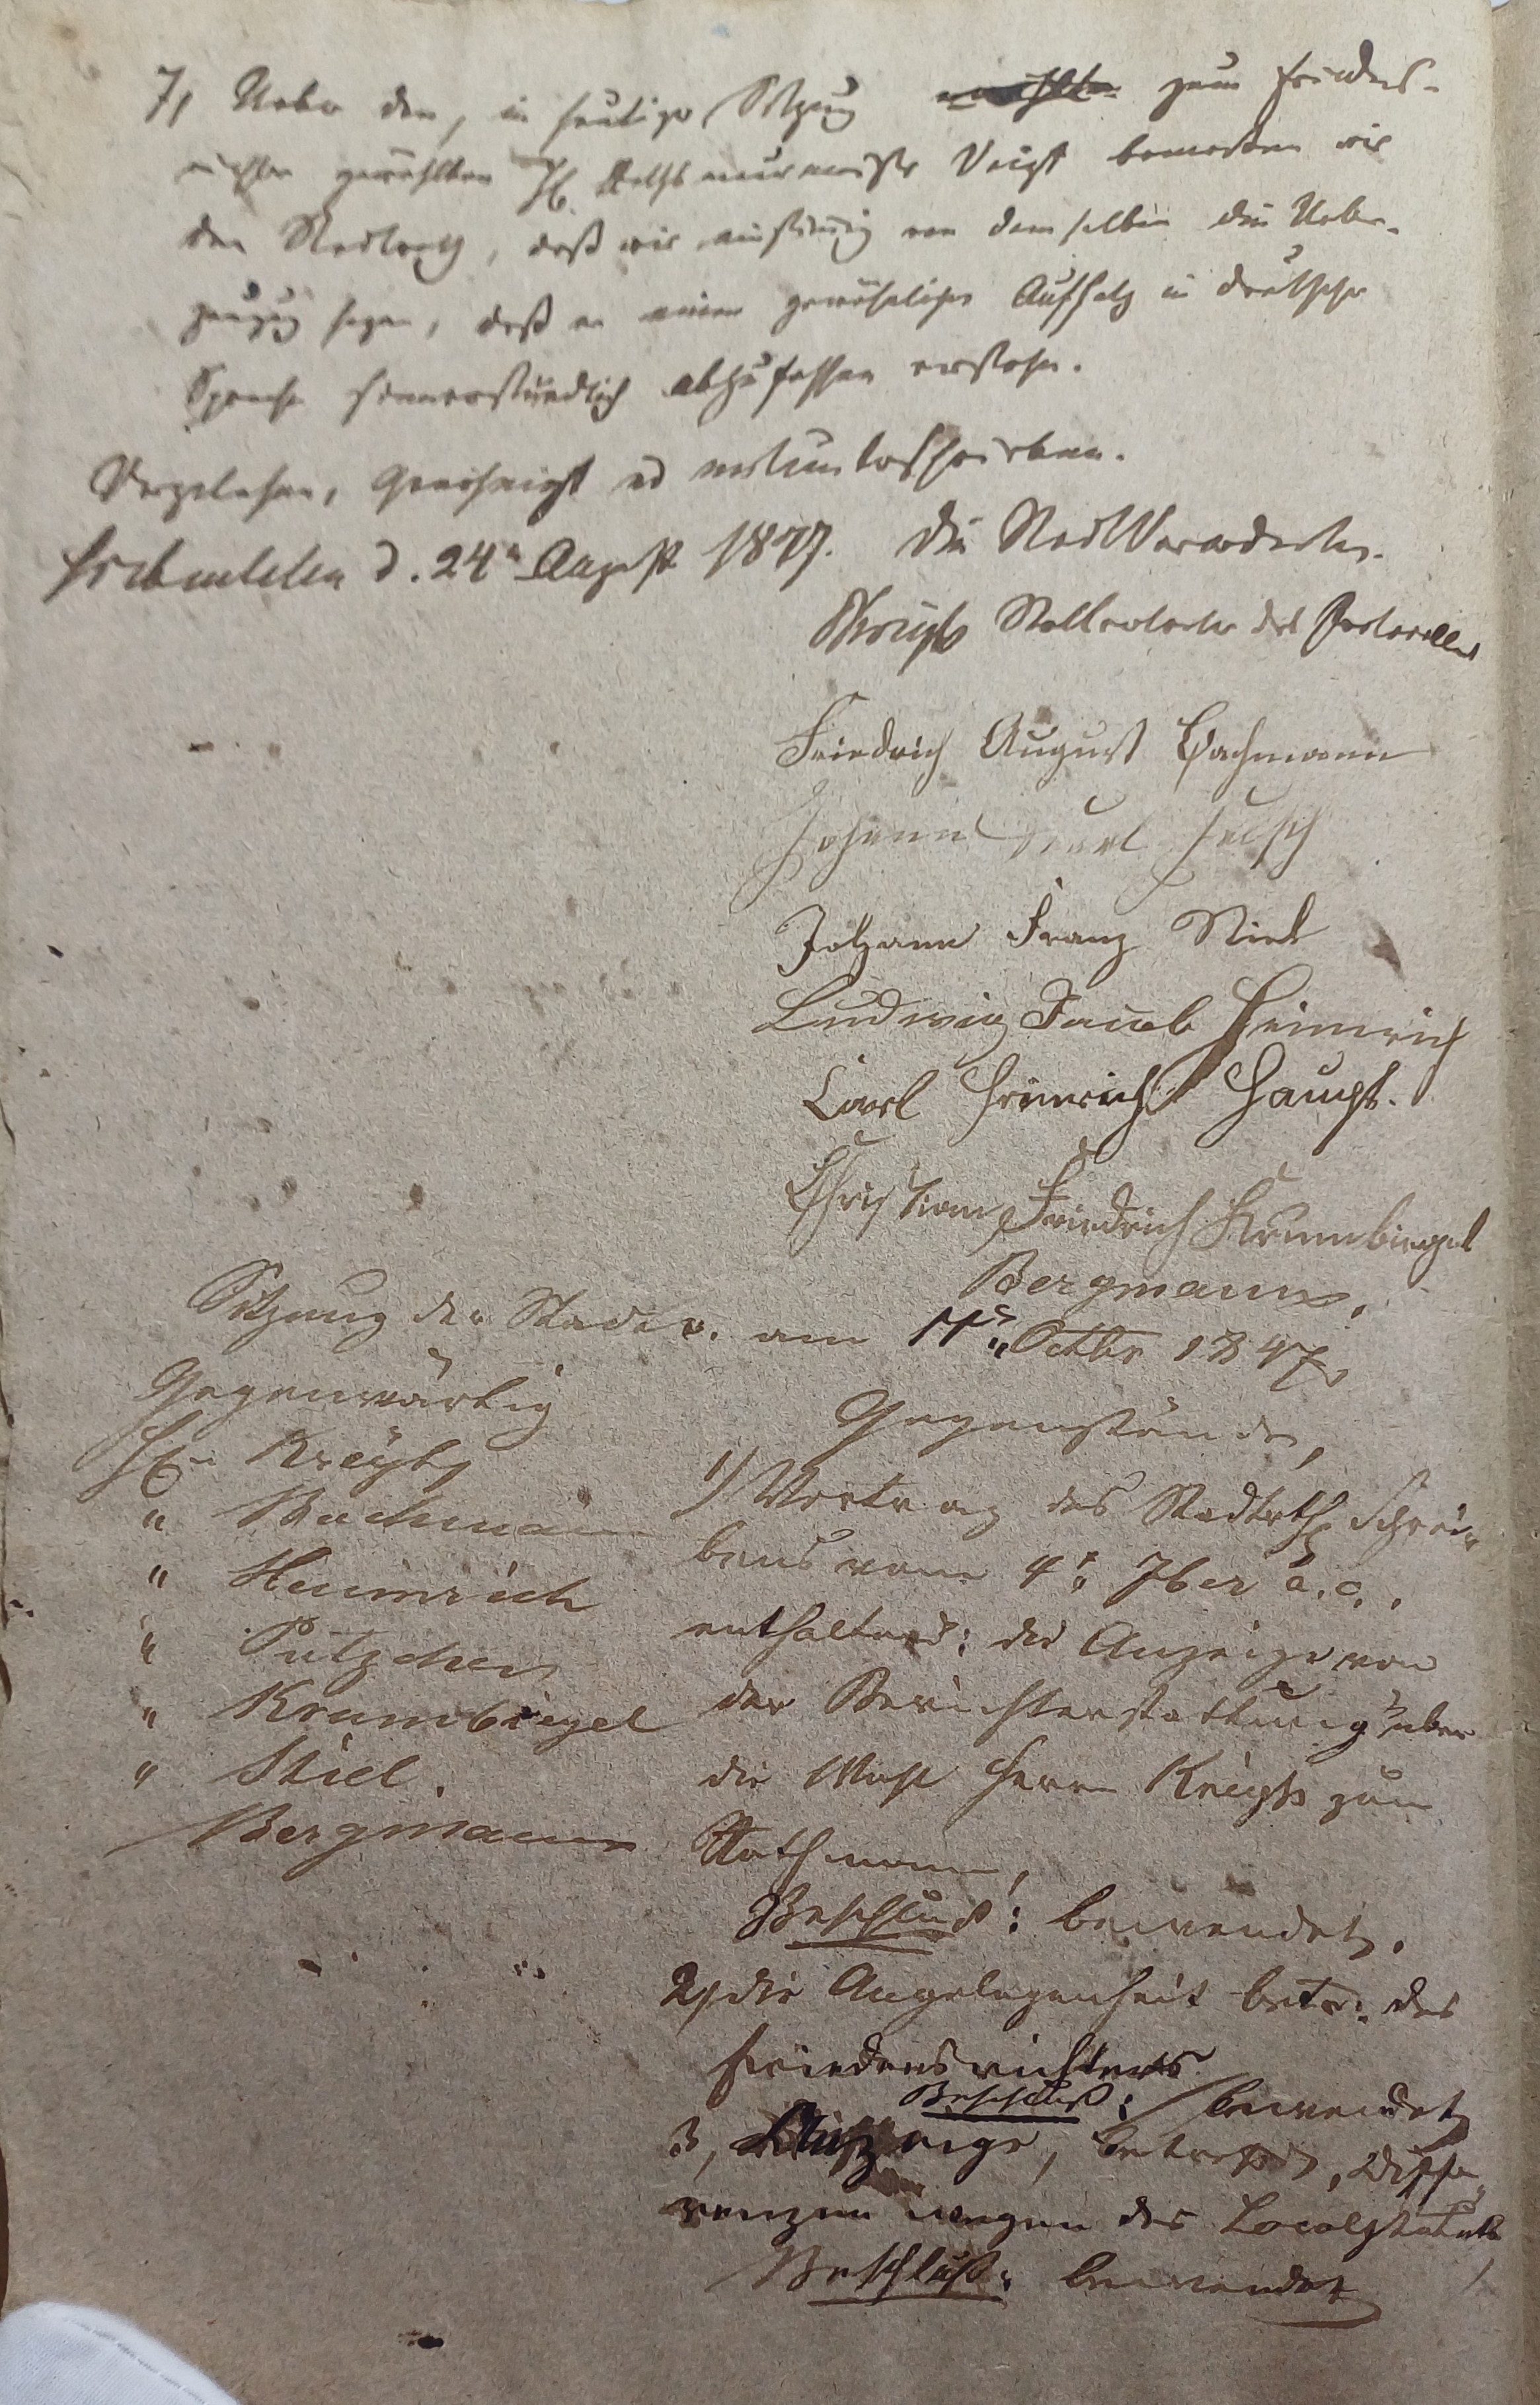 7, Ueber den, in heutiger Sitzung zum Friedens-
richter gewählten H. Voigt bemerken wir
den Stadtrath, daß wir einstimmig von demselben die Ueber-
zeugung hegen, daß er einen gewöhnlichen Aufsatz in deutscher
Sprache abzufassen verstehe.
Vorgelesen, genehmigt und mitunterschrieben.
d. 24n August 1847. Die Stadtverordneten.
Kreyß Stellvertreter des
Friedrich August Bachmann
Johann Karl
Johann Franz Stiel
Ludwig Jacob Heinrich
Carl Heinrich Haupt.
Christian Friedrich Krumbiegel
Bergmann.
Sitzung der Stadtv. am 11n Octbr 1847.
Gegenwärtig
H. Kreyß
" Bachmann
" Heinrich
" Pützchen
" Krumbiegel
" Stiel.
Bergmann
Gegenstände,
1) Vortrag des Stadtrth. Schrei-
bens vom 4t. 7ber a. c.,
enthaltend: die Anzeige von
der Berichterstattung über
die Wahl Herrn Kreyß zum
Rathmann,
Beschluß: bewendet.
2, die Angelegenheit betr. des
Friedensrichters
Beschluß: bewendet
3, Anzeige, betreffend, Diffe-
renzen wegen des Localstatuts
Beschluß: bewendet